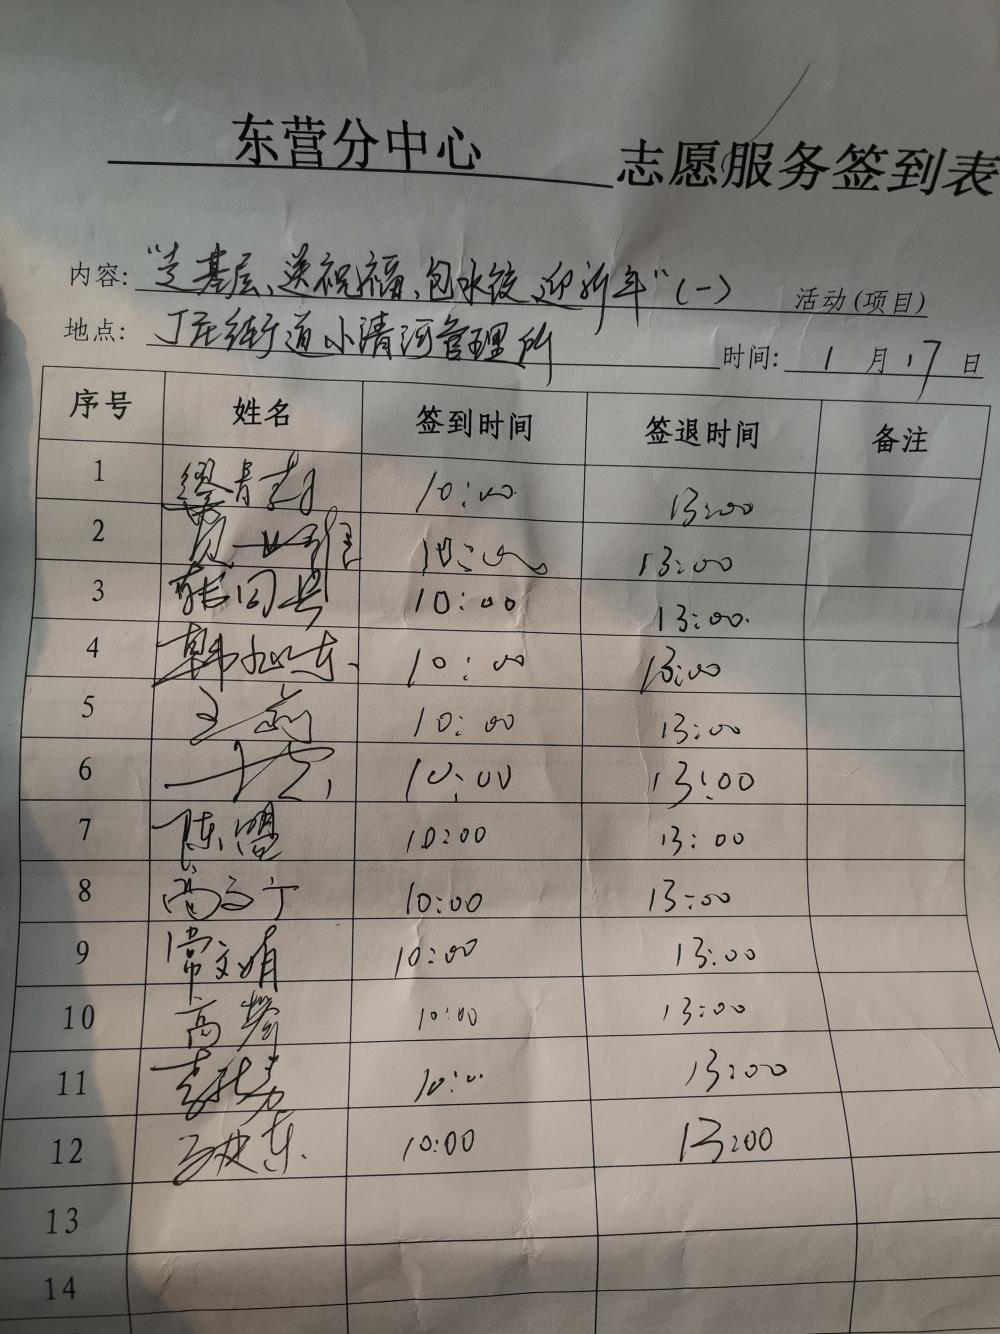 东营分中心 志愿服务签到表
内容: "走基层、送祝福、包水饺 迎新年"(一) 活动(项目)
地点: 丁庄街道小清河管理所 时间: 1月17日
序号 姓名 签到时间 签退时间 备注
1 10:00 13:00
2 10:00 13:00
3 10:00 13:00
4 韩 东 10:00 13:00
5 王 10:00 13:00
6 10:00 13:00
7 陈盟 10:00 13:00
8 高 宁 10:00 13:00
9 常文娟 10:00 13:00
10 高 10:00 13:00
11 10:00 13:00
12 东 10:00 13:00
13
14